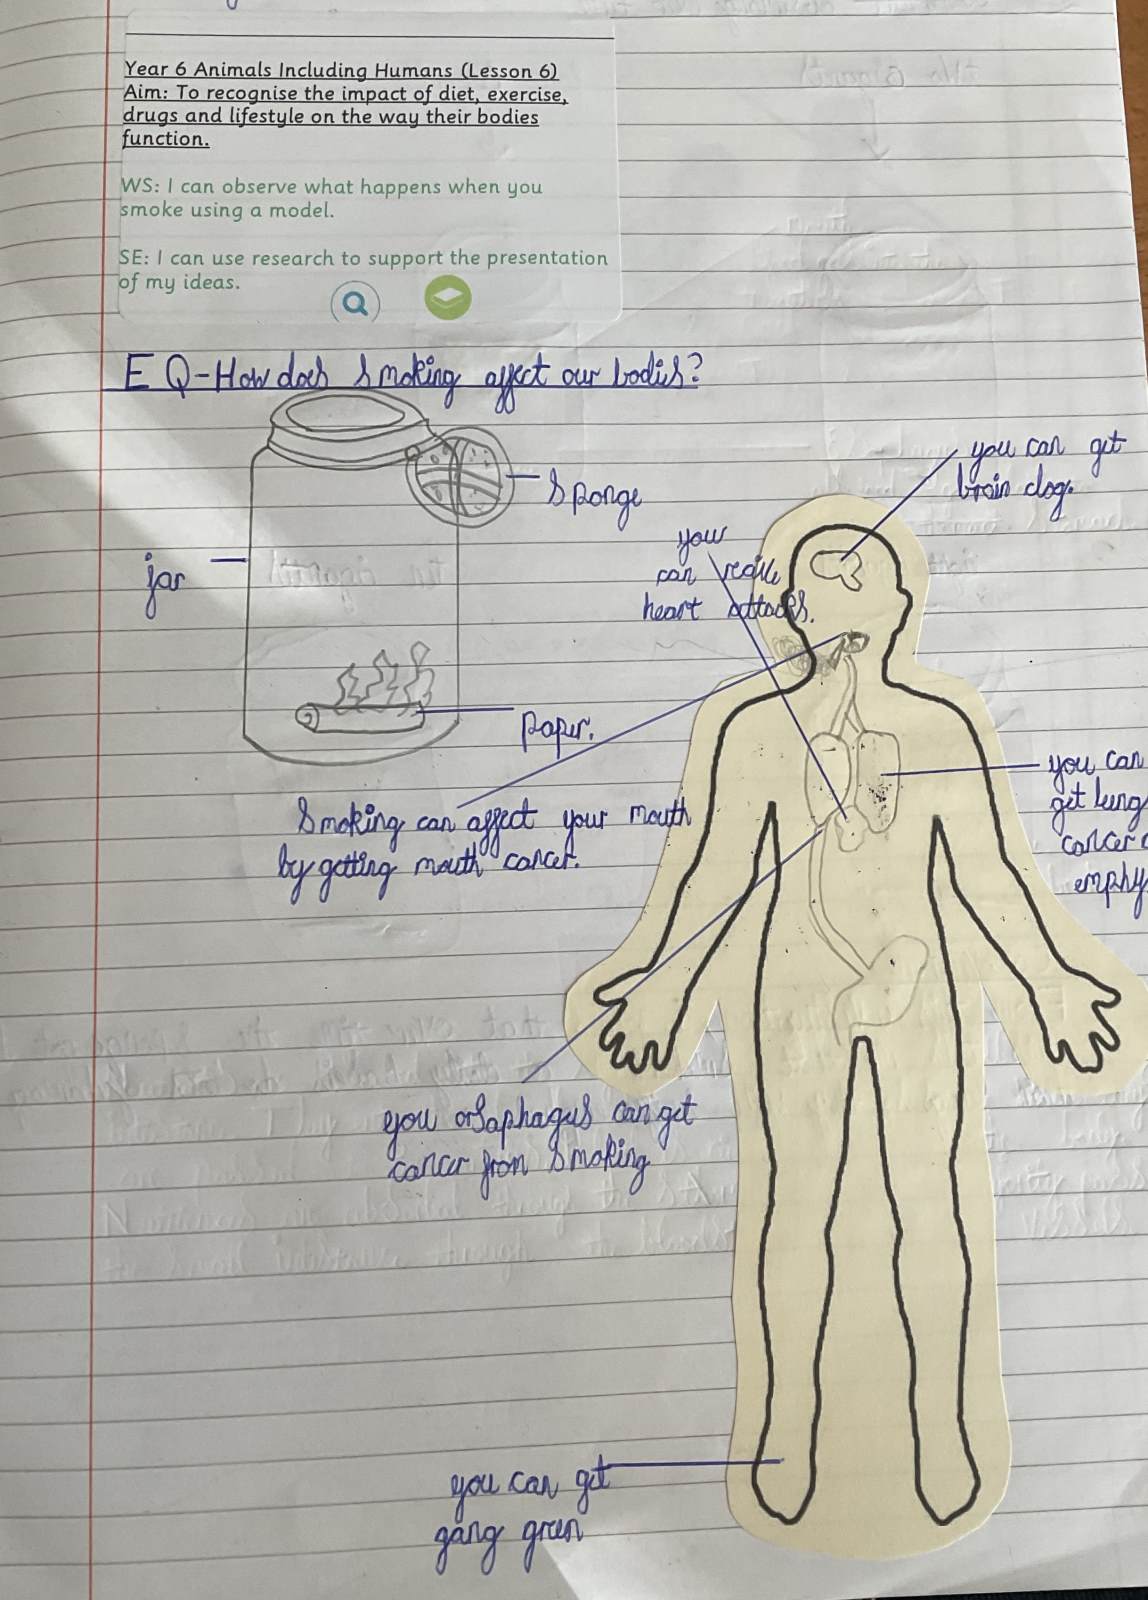 Year 6 Animals Including Humans (Lesson 6)
Aim: To recognise the impact of diet, exercise,
drugs and lifestyle on the way their bodies
function.
WS: I can observe what happens when you
smoke using a model.
SE: I can use research to support the presentation
of my ideas.
E Q-How does smoking affect our bodies?
sponge
jar
paper.
you can get
brain clog.
you
can
heart attacks.
Smoking can affect your mouth
by getting mouth cancer.
you can
get lung
cancer
emphy
you orsaphagus can get
cancer from smoking
you can get
gang green